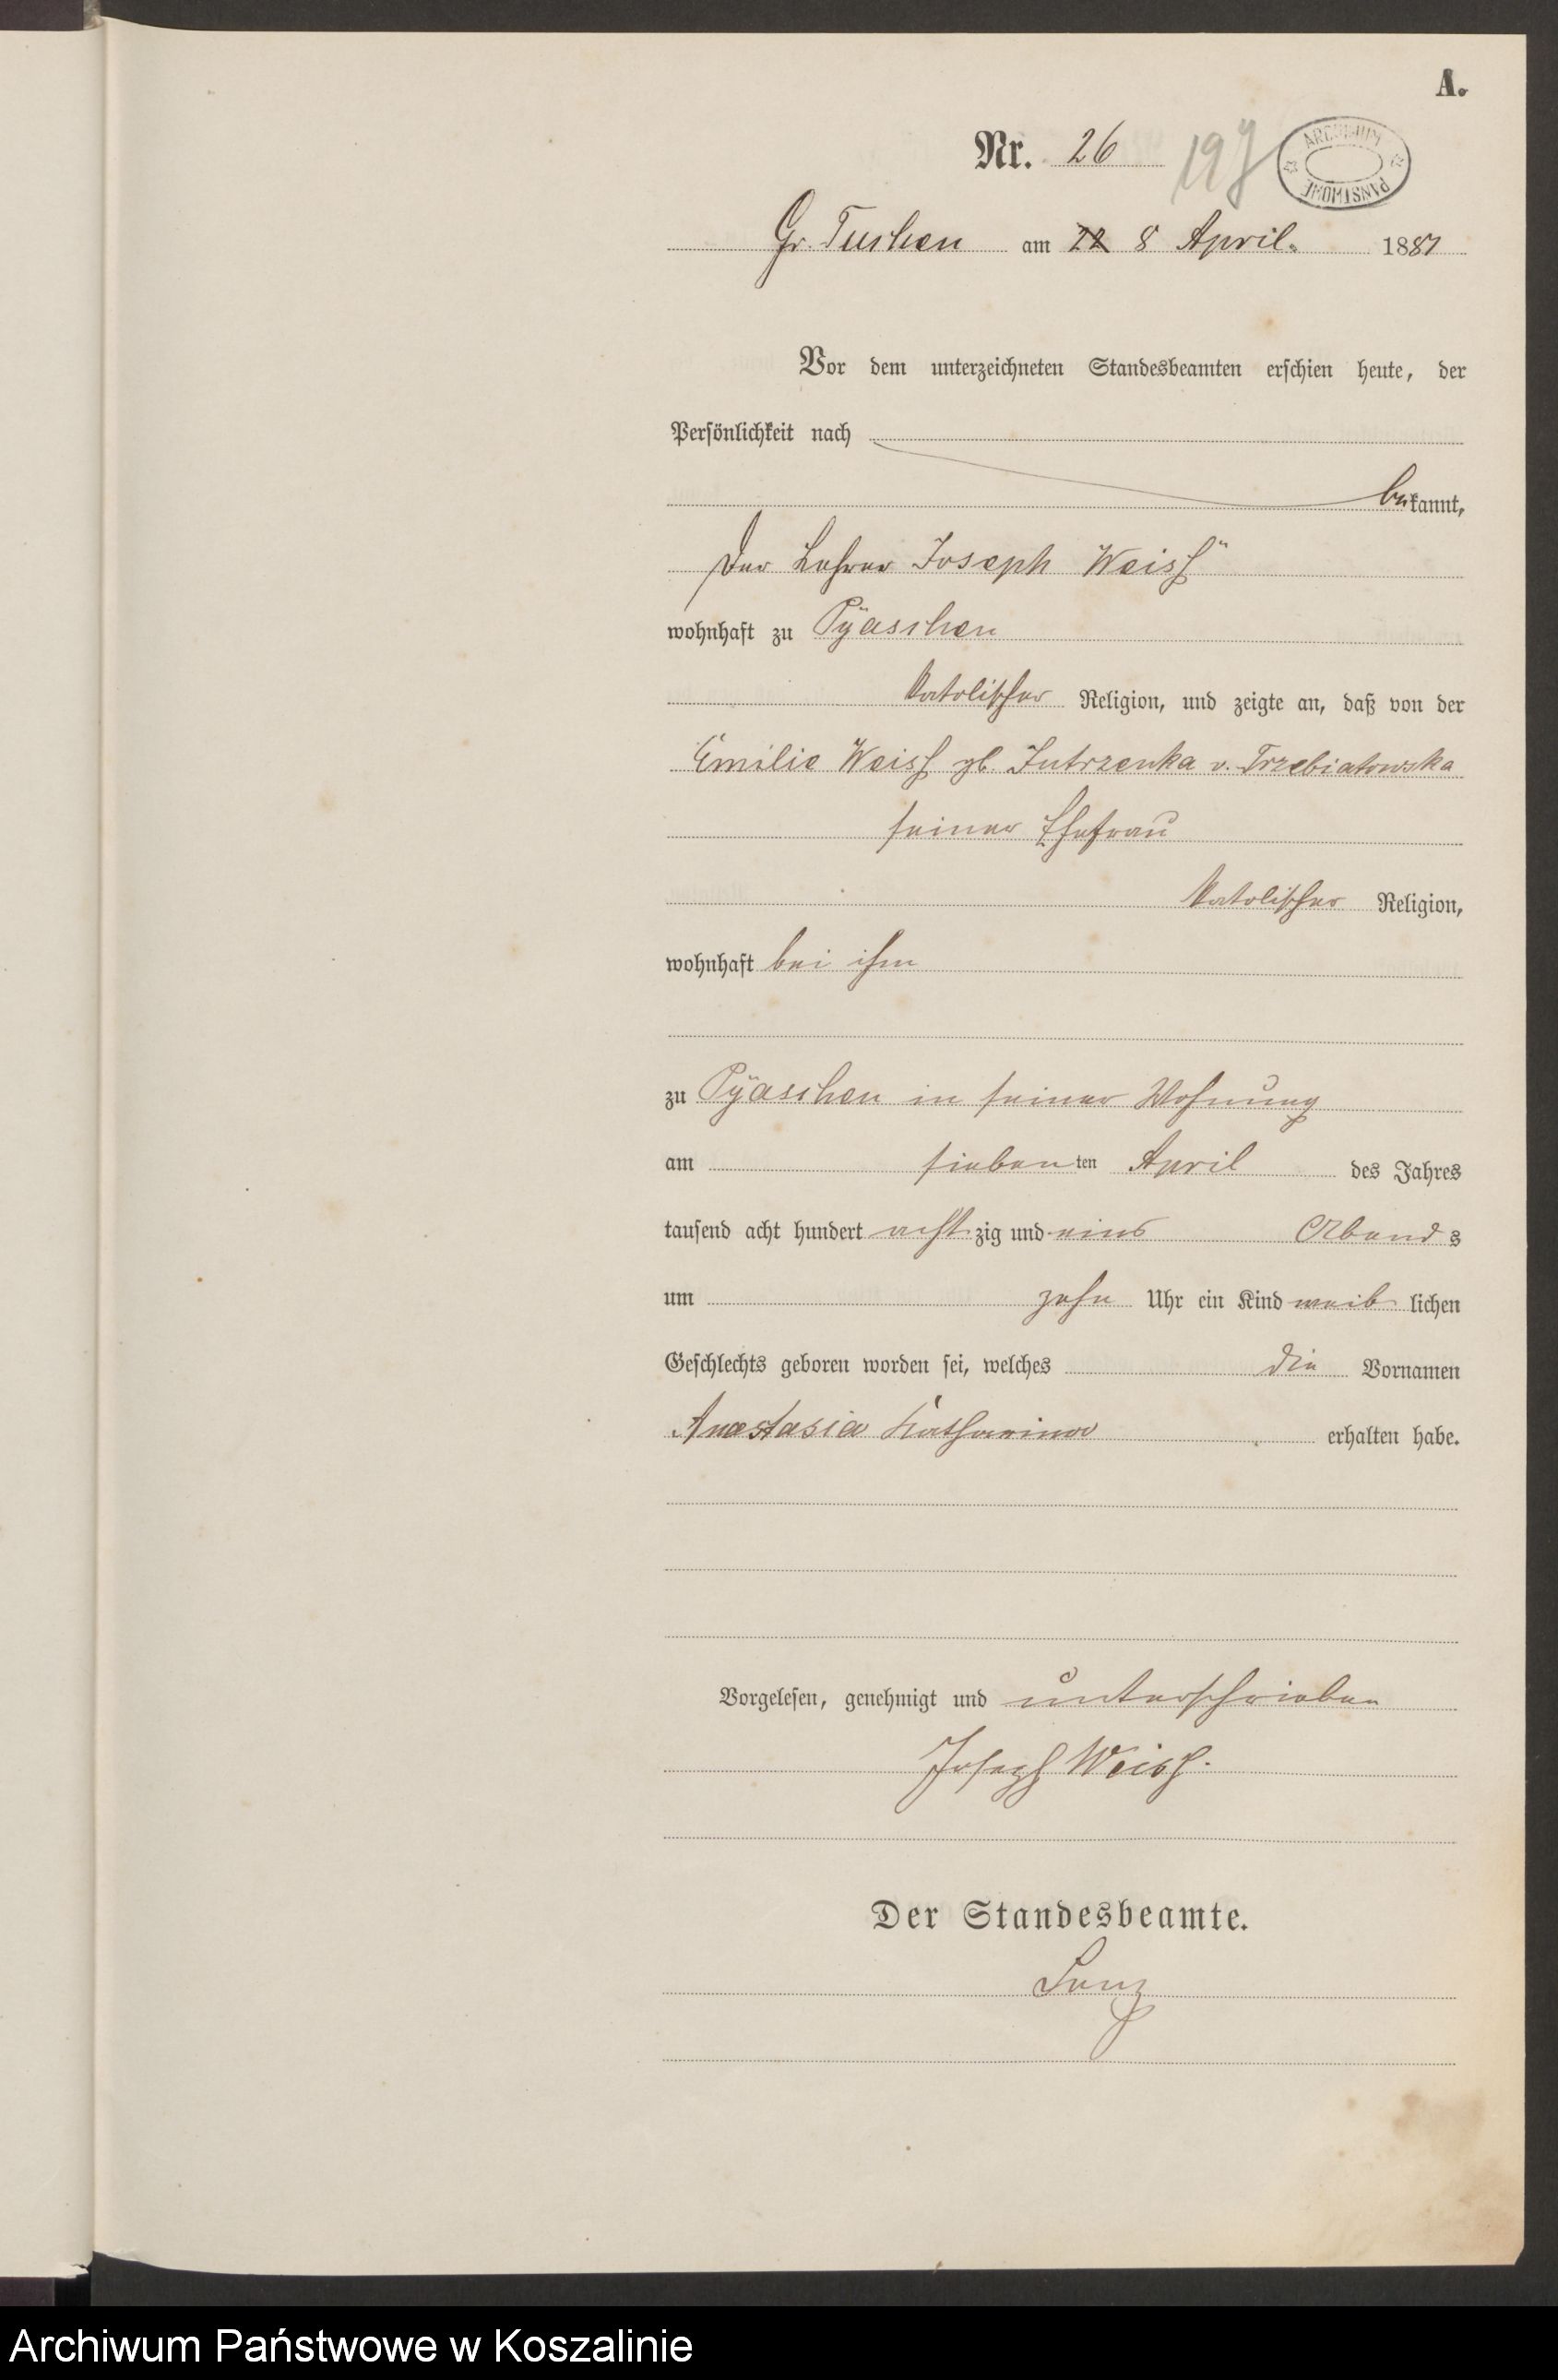 A.
Nr. 26 197
ARCHIWUM PAŃSTWOWE
Gr. Tuchen am 22 8 April. 1881
Vor dem unterzeichneten Standesbeamten erschien heute, der
Persönlichkeit nach
bekannt,
Der Lehrer Joseph Weiß
wohnhaft zu Pyaschen
katolischer Religion, und zeigte an, daß von der
Emilie Weiß gb. Jutrzenka v. Trzebiatowska
seiner Ehefrau
katolischer Religion,
wohnhaft bei ihm
zu Pyaschen in seiner Wohnung
am siebenten April des Jahres
tausend acht hundert achtzig und eins Abends
um zehn Uhr ein Kind weiblichen
Geschlechts geboren worden sei, welches die Vornamen
Anastasia Katharina erhalten habe.
Vorgelesen, genehmigt und unterschrieben
Joseph Weiß.
Der Standesbeamte.
Archiwum Państwowe w Koszalinie